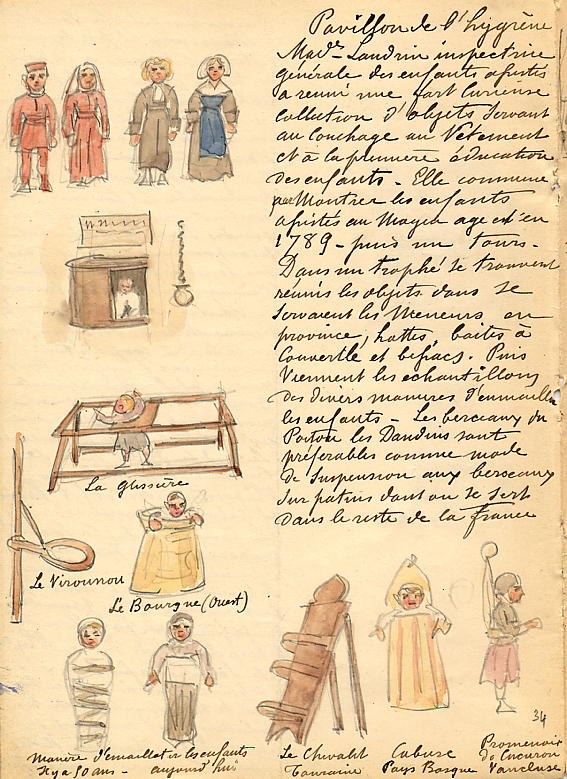 Pavillon de l'hygiène
Made Landrin inspectrice
générale des enfants assistés
a reuni une fort curieuse
collection d'objets servant
au couchage au Vêtement
et à la première éducation
des enfants - Elle commence
par Montrer les enfants
assistés au Moyen age et en
1789 - puis un tours.
Dans un trophé se trouvent
réunis les objets dans se
servaient les Meneurs en
province, hottes, boites à
Couvercle et besacs. Puis
Viennent les echantillons
des divers manieres d'emmailler
les enfants - Les berceaux du
Poitou les Daudins sont
préferables comme mode
de Suspension aux berseaux
sur patins dont on se sert
dans le reste de la france
La Glissière
Le Virounou
Le Bourgne (Ouest)
Manière d'emailloter les enfants
il y a 50 ans - aujourd'hui
Le Chevalet
Touraine
Cabuse
Pays Basque
Promenoir
de Cucuron
Vaucluse
34